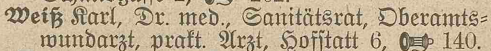 Weiß Karl, Dr. med., Sanitätsrat, Oberamts=
wundarzt, prakt. Arzt, Hofstatt 6, 140.